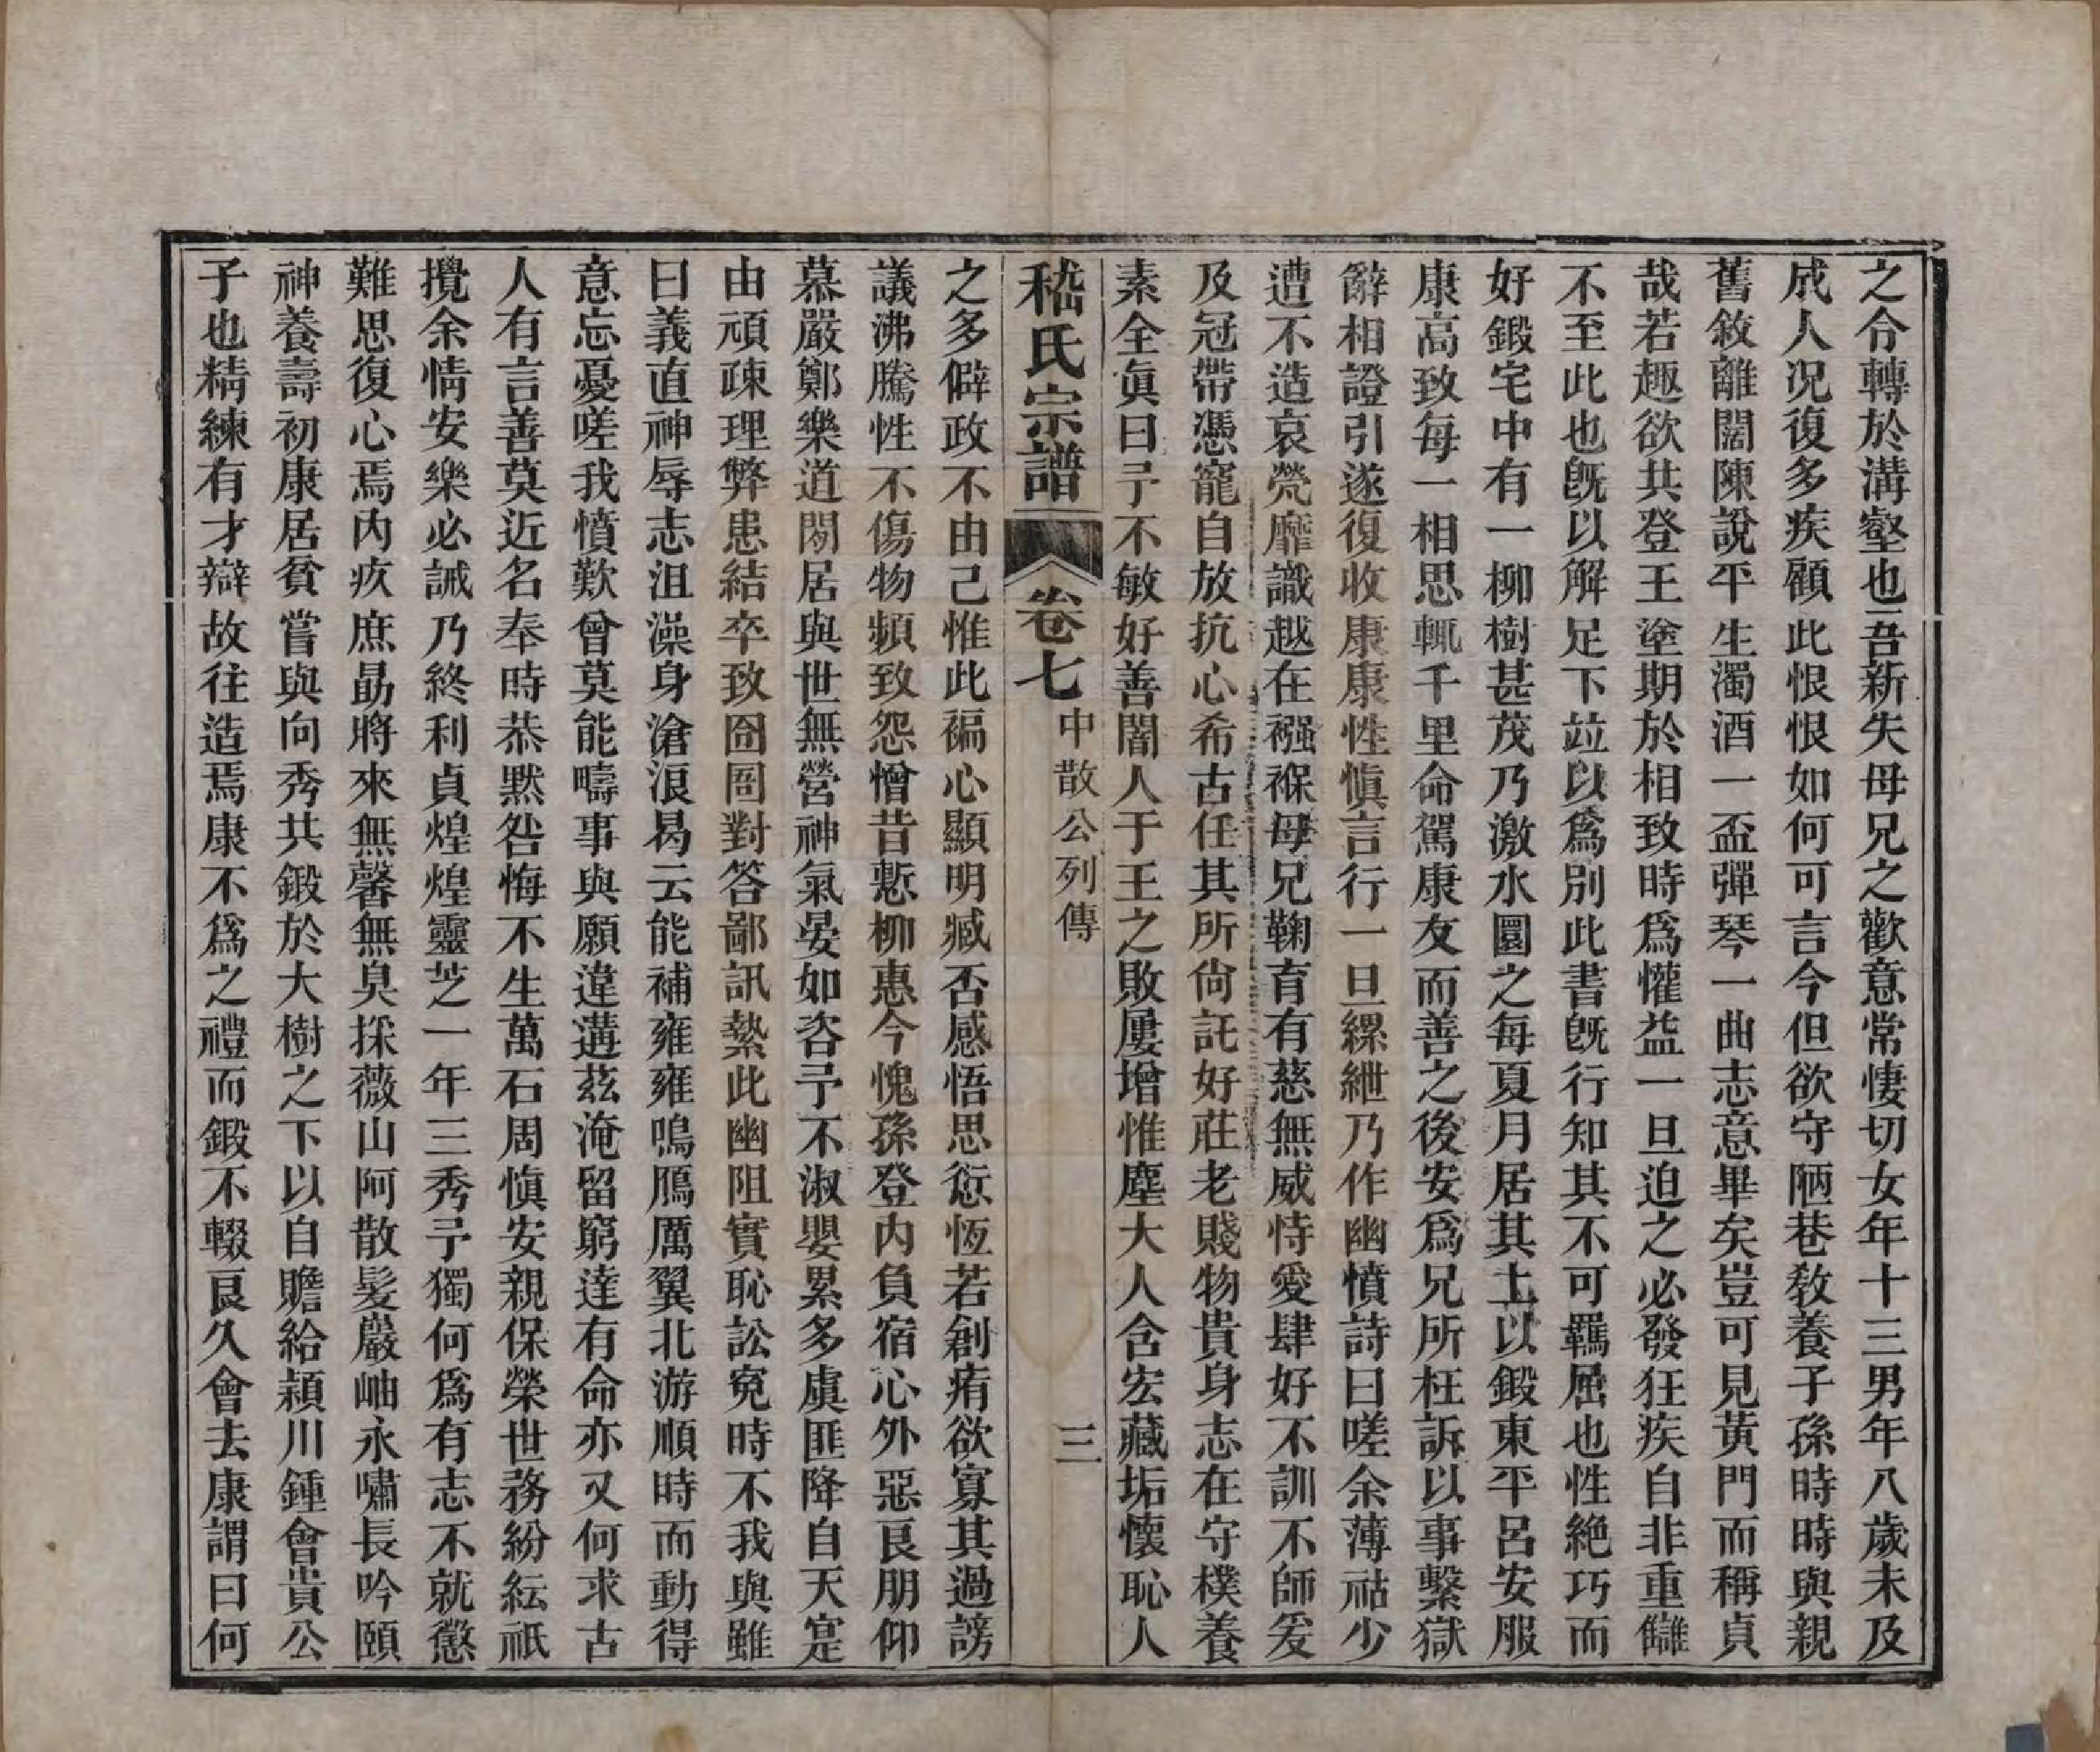 之令轉於溝壑也吾新失母兄之歡意常悽切女年十三男年八歲未及
成人況復多疾顧此恨恨如何可言今但欲守陋巷敎養子孫時時與親
舊敘離闊陳說平生濁酒一盃彈琴一曲志意畢矣豈可見黃門而稱貞
哉若趣欲共登王塗期於相致時爲懽益一旦迫之必發狂疾自非重讎
不至此也旣以解足下竝以爲別此書旣行知其不可羈屈也性絶巧而
好鍛宅中有一柳樹甚茂乃激水圜之每夏月居其土以鍛東平呂安服
康高致每一相思輒千里命駕康友而善之後安爲兄所枉訴以事繫獄
辭相證引遂復收康康性愼言行一旦縲紲乃作幽憤詩曰嗟余薄祜少
遭不造哀煢靡識越在襁褓母兄鞠育有慈無威恃愛肆好不訓不師爰
及冠帶憑寵自放抗心希古任其所尙託好莊老賤物貴身志在守樸養
素全眞曰予不敏好善闇人于王之敗屢增惟塵大人含宏藏垢懷恥人
嵇氏宗譜 卷七 中散公列傳 三
之多僻政不由己惟此褊心顯明臧否感悟思愆恆若創痏欲寡其過謗
議沸騰性不傷物頻致怨憎昔慙柳惠今愧孫登內負宿心外惡良朋仰
慕嚴鄭樂道閒居與世無營神氣晏如咨予不淑嬰累多虞匪降自天寔
由頑疎理弊患結卒致囹圄對答鄙訊縶此幽阻實恥訟寃時不我與雖
曰義直神辱志沮澡身滄浪曷云能補雍雍鳴鴈厲翼北游順時而動得
意忘憂嗟我憤歎曾莫能疇事與願違遘茲淹留窮達有命亦又何求古
人有言善莫近名奉時恭默咎悔不生萬石周愼安親保榮世務紛紜祇
攪余情安樂必誡乃終利貞煌煌靈芝一年三秀予獨何爲有志不就懲
難思復心焉內疚庶勗將來無馨無臭採薇山阿散髮巖岫永嘯長吟頤
神養壽初康居貧嘗與向秀共鍛於大樹之下以自贍給潁川鍾會貴公
子也精練有才辯故往造焉康不爲之禮而鍛不輟良久會去康謂曰何